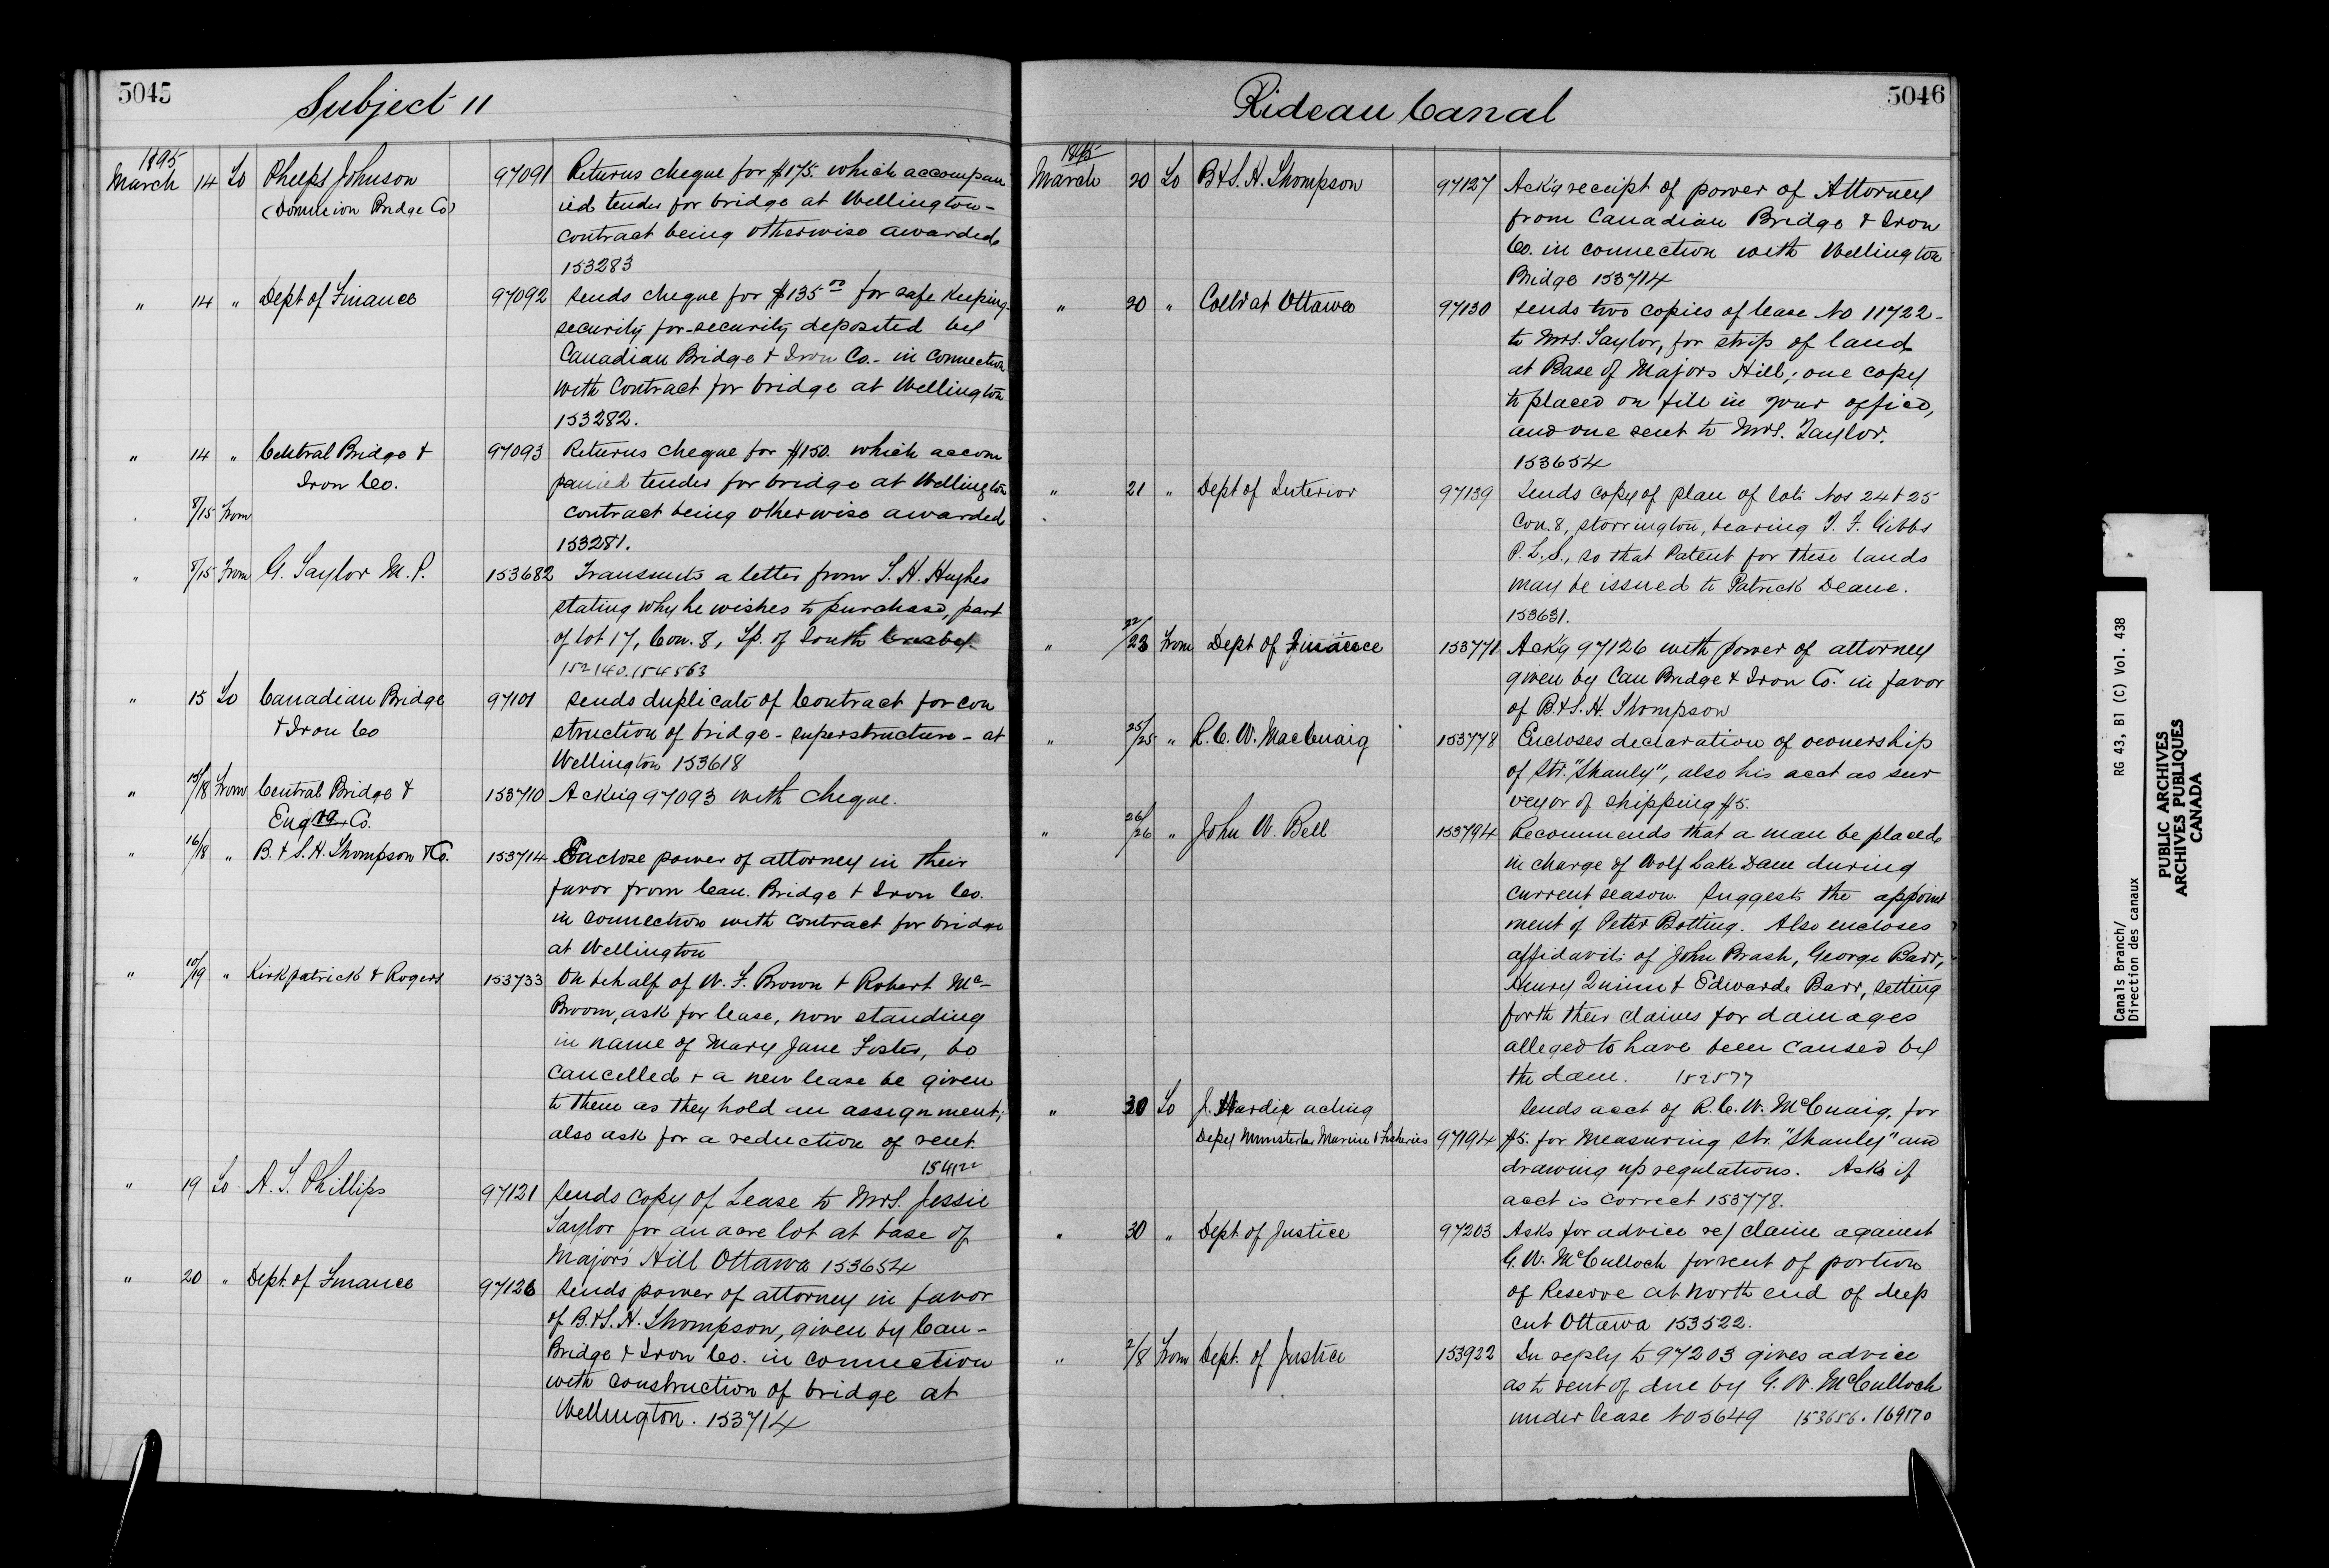 5045
Subject 11
1895
March 14 To Phelps Johnson 97091 Returns cheque for $175. which accompan
(Dominion Bridge Co) ied tender for bridge at Wellington-
contract being otherwise awarded
153283
" 14 " Dept of Finance 97092 Sends cheque for $135 00 for safe keeping-
security for-security deposited by
Canadian Bridge & Iron Co.- in connection
with Contract for bridge at Wellington
153282.
" 14 " Central Bridge & 97093 Returns cheque for $150. which accom
Iron Co. panied tender for bridge at Wellington
8/15 From contract being otherwise awarded
153281.
" 8/15 From G. Taylor M.P. 153682 Transmits a letter from S. H. Hughes
stating why he wishes to purchase, part
of lot 17, Con. 8, Tp. of South Crosby
152140. 154563
" 15 To Canadian Bridge 97101 Sends duplicate of Contract for con
& Iron Co struction of bridge - superstructure - at
Wellington 153618
" 15/18 From Central Bridge & 153710 Ackn'g 97093 with cheque.
Eng'rg Co.
" 16/18 " B. & S. H. Thompson & Co. 153714 Enclose power of attorney in their
favor from Can. Bridge & Iron Co.
in connection with contract for bridge
at Wellington
" 10/19 " Kirkpatrick & Rogers 153733 On behalf of W. F. Brown & Robert Mc-
Broom, ask for lease, now standing
in name of Mary Jane Foster, be
cancelled & a new lease be given
to them as they hold an assignment;
also ask for a reduction of rent
154122
" 19 To A. T. Phillips 97121 Sends copy of Lease to Mrs. Jessie
Taylor for an acre lot at base of
Major's Hill Ottawa 153654
" 20 " Dept. of Finance 97126 Sends power of attorney in favor
of B. & S. H. Thompson, given by Can-
Bridge & Iron Co. in connection
with construction of bridge at
Wellington. 153714
5046
Rideau Canal
1895
March 20 To B & S. H. Thompson 97127 Ack'g receipt of power of Attorney
from Canadian Bridge & Iron
Co. in connection with Wellington
Bridge 153714
" 20 " Coll'r at Ottawa 97130 Sends two copies of lease No 11722-
to Mrs. Taylor, for strip of land
at Base of Majors Hill; one copy
to placed on file in your office,
and one sent to Mrs. Taylor.
153654
" 21 " Dept of Interior 97139 Sends copy of plan of lots Nos 24 & 25
Con. 8, Storrington, bearing T. F. Gibbs
P.L.S., so that Patent for these lands
may be issued to Patrick Deane.
153631.
" 22/23 From Dept of Finance 153771 Ack'g 97126 with power of attorney
given by Can Bridge & Iron Co. in favor
of B. & S. H. Thompson
" 25/25 " R. C. W. MacCuaig 153778 Encloses declaration of ownership
of Str. "Shanly", also his acct as sur
veyor of shipping $5.
" 26/26 " John W. Bell 153794 Recommends that a man be placed
in charge of Wolf Lake Dam during
current season. Suggests the appoint
ment of Peter Botting. Also encloses
affidavits of John Brash, George Barr,
Henry Quinn & Edwarde Barr, setting
forth their claims for damages
alleged to have been caused by
the dam. 152577
" 30 To J. Hardie acting Sends acct of R. C. W. McCuaig, for
Depy Minister Marine & Fisheries 97194 $5. for measuring Str. "Shanley" and
drawing up regulations. Asks if
acct is correct 153778.
" 30 " Dept of Justice 97203 Asks for advice re/ claim against
G. W. McCulloch for rent of portion
of Reserve at north end of deep
cut Ottawa 153522.
" 2/8 From Dept. of Justice 153922 In reply to 97203 gives advice
as to rent of due by G. W. McCulloch
under lease No 5649 153656. 169170
Canals Branch/ RG 43, B1 (C) Vol. 438
Direction des canaux
PUBLIC ARCHIVES
ARCHIVES PUBLIQUES
CANADA